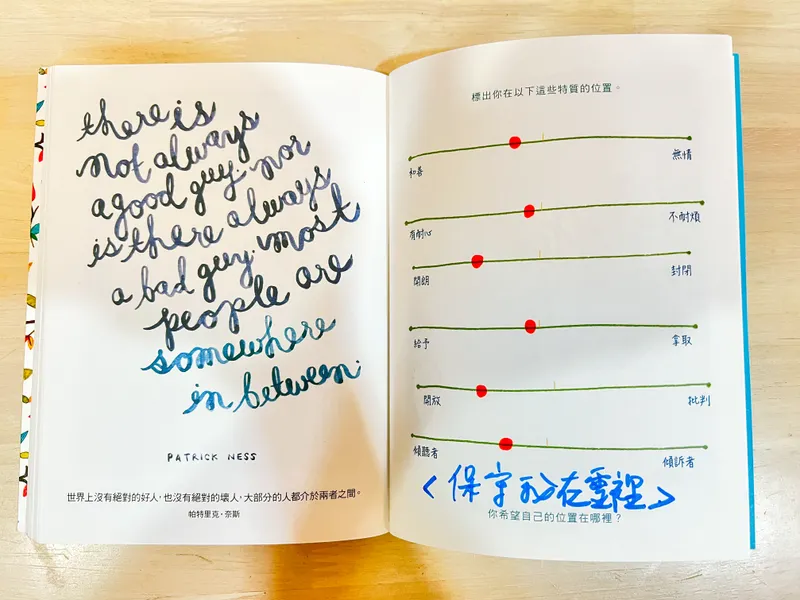 there is
not always
a good guy. nor
is there always
a bad guy. most
people are
somewhere
in between.
PATRICK NESS
世界上沒有絕對的好人，也沒有絕對的壞人，大部分的人都介於兩者之間。
帕特里克・奈斯
標出你在以下這些特質的位置。
和善 無情
有耐心 不耐煩
開朗 封閉
給予 拿取
開放 批判
傾聽者 傾訴者
保守 在靈裡
你希望自己的位置在哪裡？